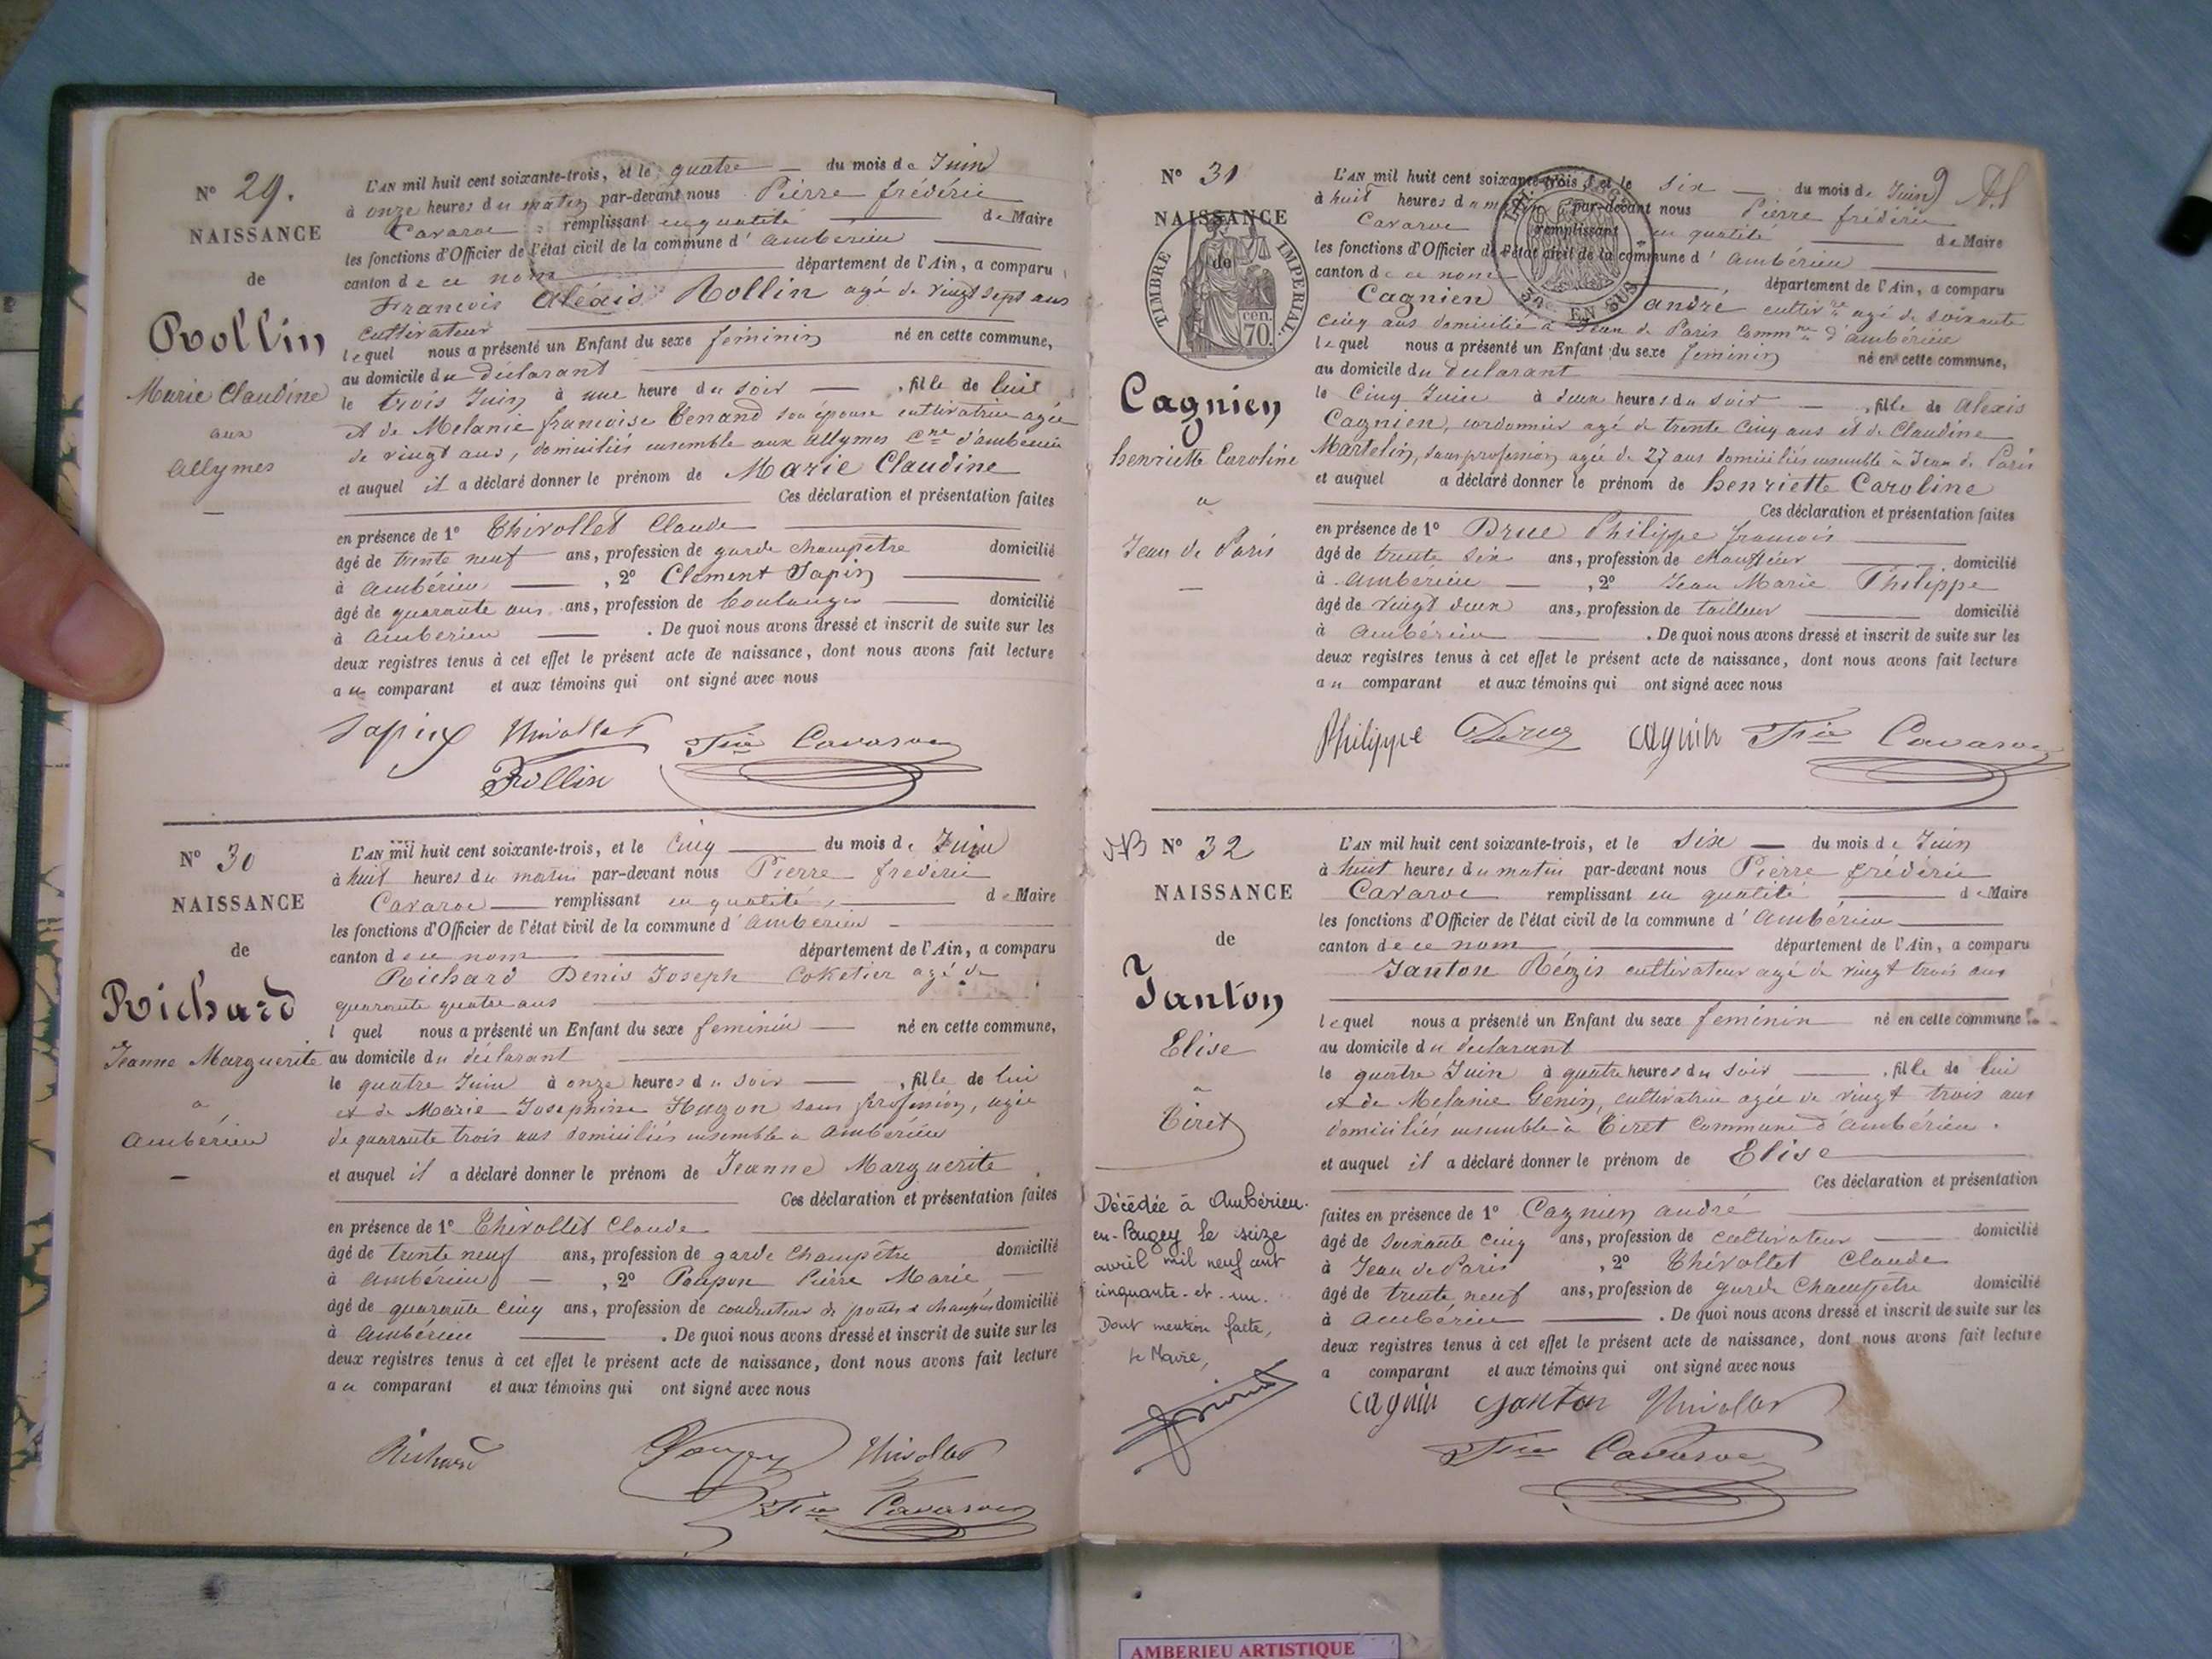 N° 29.
NAISSANCE
de
Rollin
Marie Claudine
aux
allymes
L'AN mil huit cent soixante-trois, et le quatre du mois de Juin
à onze heures du matin par-devant nous Pierre frédéric
Cavaroc remplissant en qualité de Maire
les fonctions d'Officier de l'état civil de la commune d'ambérieu
canton de ce nom département de l'Ain, a comparu
François aléxis Rollin agé de vingt sept ans
cultivateur
lequel nous a présenté un Enfant du sexe féminin né en cette commune,
au domicile du déclarant
le trois Juin à une heure du soir , fille de lui
et de Melanie françoise Tenand son épouse cultivatrice agée
de vingt ans, domiciliés ensemble aux allymes cne d'ambérieu
et auquel il a déclaré donner le prénom de Marie Claudine
Ces déclaration et présentation faites
en présence de 1° Thivollet Claude
âgé de trente neuf ans, profession de garde champêtre domicilié
à ambérieu , 2° Clément Sapin
âgé de quarante ans ans, profession de boulanger domicilié
à ambérieu . De quoi nous avons dressé et inscrit de suite sur les
deux registres tenus à cet effet le présent acte de naissance, dont nous avons fait lecture
au comparant et aux témoins qui ont signé avec nous
Sapin Thivollet Fric Cavaroc
Rollin
N° 30
NAISSANCE
de
Richard
Jeanne Marguerite
a
ambérieu
L'AN mil huit cent soixante-trois, et le cinq du mois de Juin
à huit heures du matin par-devant nous Pierre frédéric
Cavaroc remplissant en qualité de Maire
les fonctions d'Officier de l'état civil de la commune d'ambérieu
canton de ce nom département de l'Ain, a comparu
Richard Denis Joseph Coketier agé de
quarante quatre ans
l quel nous a présenté un Enfant du sexe féminin né en cette commune,
au domicile du déclarant
le quatre Juin à onze heures du soir , fille de lui
et de Marie Josephine Hugon sans profession, agée
de quarante trois ans domiciliés ensemble a ambérieu
et auquel il a déclaré donner le prénom de Jeanne Marguerite
Ces déclaration et présentation faites
en présence de 1° Thivollet Claude
âgé de trente neuf ans, profession de garde champêtre domicilié
à ambérieu , 2° Poupon Pierre Marie
âgé de quarante cinq ans, profession de conducteur de ponts & chaussées domicilié
à ambérieu . De quoi nous avons dressé et inscrit de suite sur les
deux registres tenus à cet effet le présent acte de naissance, dont nous avons fait lecture
au comparant et aux témoins qui ont signé avec nous
Richard Thivollet
Fric Cavaroc
N° 31
NAISSANCE
de
TIMBRE IMPERIAL
70 cen.
Cagnien
henriette Caroline
a
Jean de Paris
L'AN mil huit cent soixante-trois, et le six du mois de Juin
à huit heures du matin par-devant nous Pierre frédéric
Cavaroc remplissant en qualité de Maire
les fonctions d'Officier de l'état civil de la commune d'ambérieu
canton de ce nom département de l'Ain, a comparu
EN SUS
Cagnien andré cultivr agé de soixante
cinq ans domicilié à Jean de Paris Commne d'ambérieu
lequel nous a présenté un Enfant du sexe féminin né en cette commune,
au domicile du déclarant
le Cinq Juin à deux heures du soir , fille de alexis
Cagnien, cordonnier agé de trente cinq ans et de Claudine
Martelin, sans profession agée de 27 ans domiciliés ensemble à Jean de Paris
et auquel a déclaré donner le prénom de henriette Caroline
Ces déclaration et présentation faites
en présence de 1° Drue Philippe françois
âgé de trente six ans, profession de chauffeur domicilié
à ambérieu , 2° Jean Marie Philippe
âgé de vingt deux ans, profession de tailleur domicilié
à ambérieu . De quoi nous avons dressé et inscrit de suite sur les
deux registres tenus à cet effet le présent acte de naissance, dont nous avons fait lecture
au comparant et aux témoins qui ont signé avec nous
Philippe cagnin Fric Cavaroc
N° 32
NAISSANCE
de
Janton
Elise
a
Tiret
Décédée à Ambérieu-
en-Bugey le seize
avril mil neuf cent
cinquante-et-un.
Dont mention faite,
Le Maire,
L'AN mil huit cent soixante-trois, et le six du mois de Juin
à huit heures du matin par-devant nous Pierre frédéric
Cavaroc remplissant en qualité de Maire
les fonctions d'Officier de l'état civil de la commune d'ambérieu
canton de ce nom département de l'Ain, a comparu
Janton Régis cultivateur agé de vingt trois ans
lequel nous a présenté un Enfant du sexe féminin né en cette commune
au domicile du déclarant
le quatre Juin à quatre heures du soir , fille de lui
et de Melanie Genin, cultivatrice agée de vingt trois ans
domiciliés ensemble à Tiret Commune d'ambérieu.
et auquel il a déclaré donner le prénom de Elise
Ces déclaration et présentation
faites en présence de 1° Cagnien andré
âgé de soixante cinq ans, profession de cultivateur domicilié
à Jean de Paris , 2° Thivollet Claude
âgé de trente neuf ans, profession de garde Champêtre domicilié
à ambérieu . De quoi nous avons dressé et inscrit de suite sur les
deux registres tenus à cet effet le présent acte de naissance, dont nous avons fait lecture
a comparant et aux témoins qui ont signé avec nous
cagnin Janton Thivollet
Fric Cavaroc
AMBERIEU ARTISTIQUE